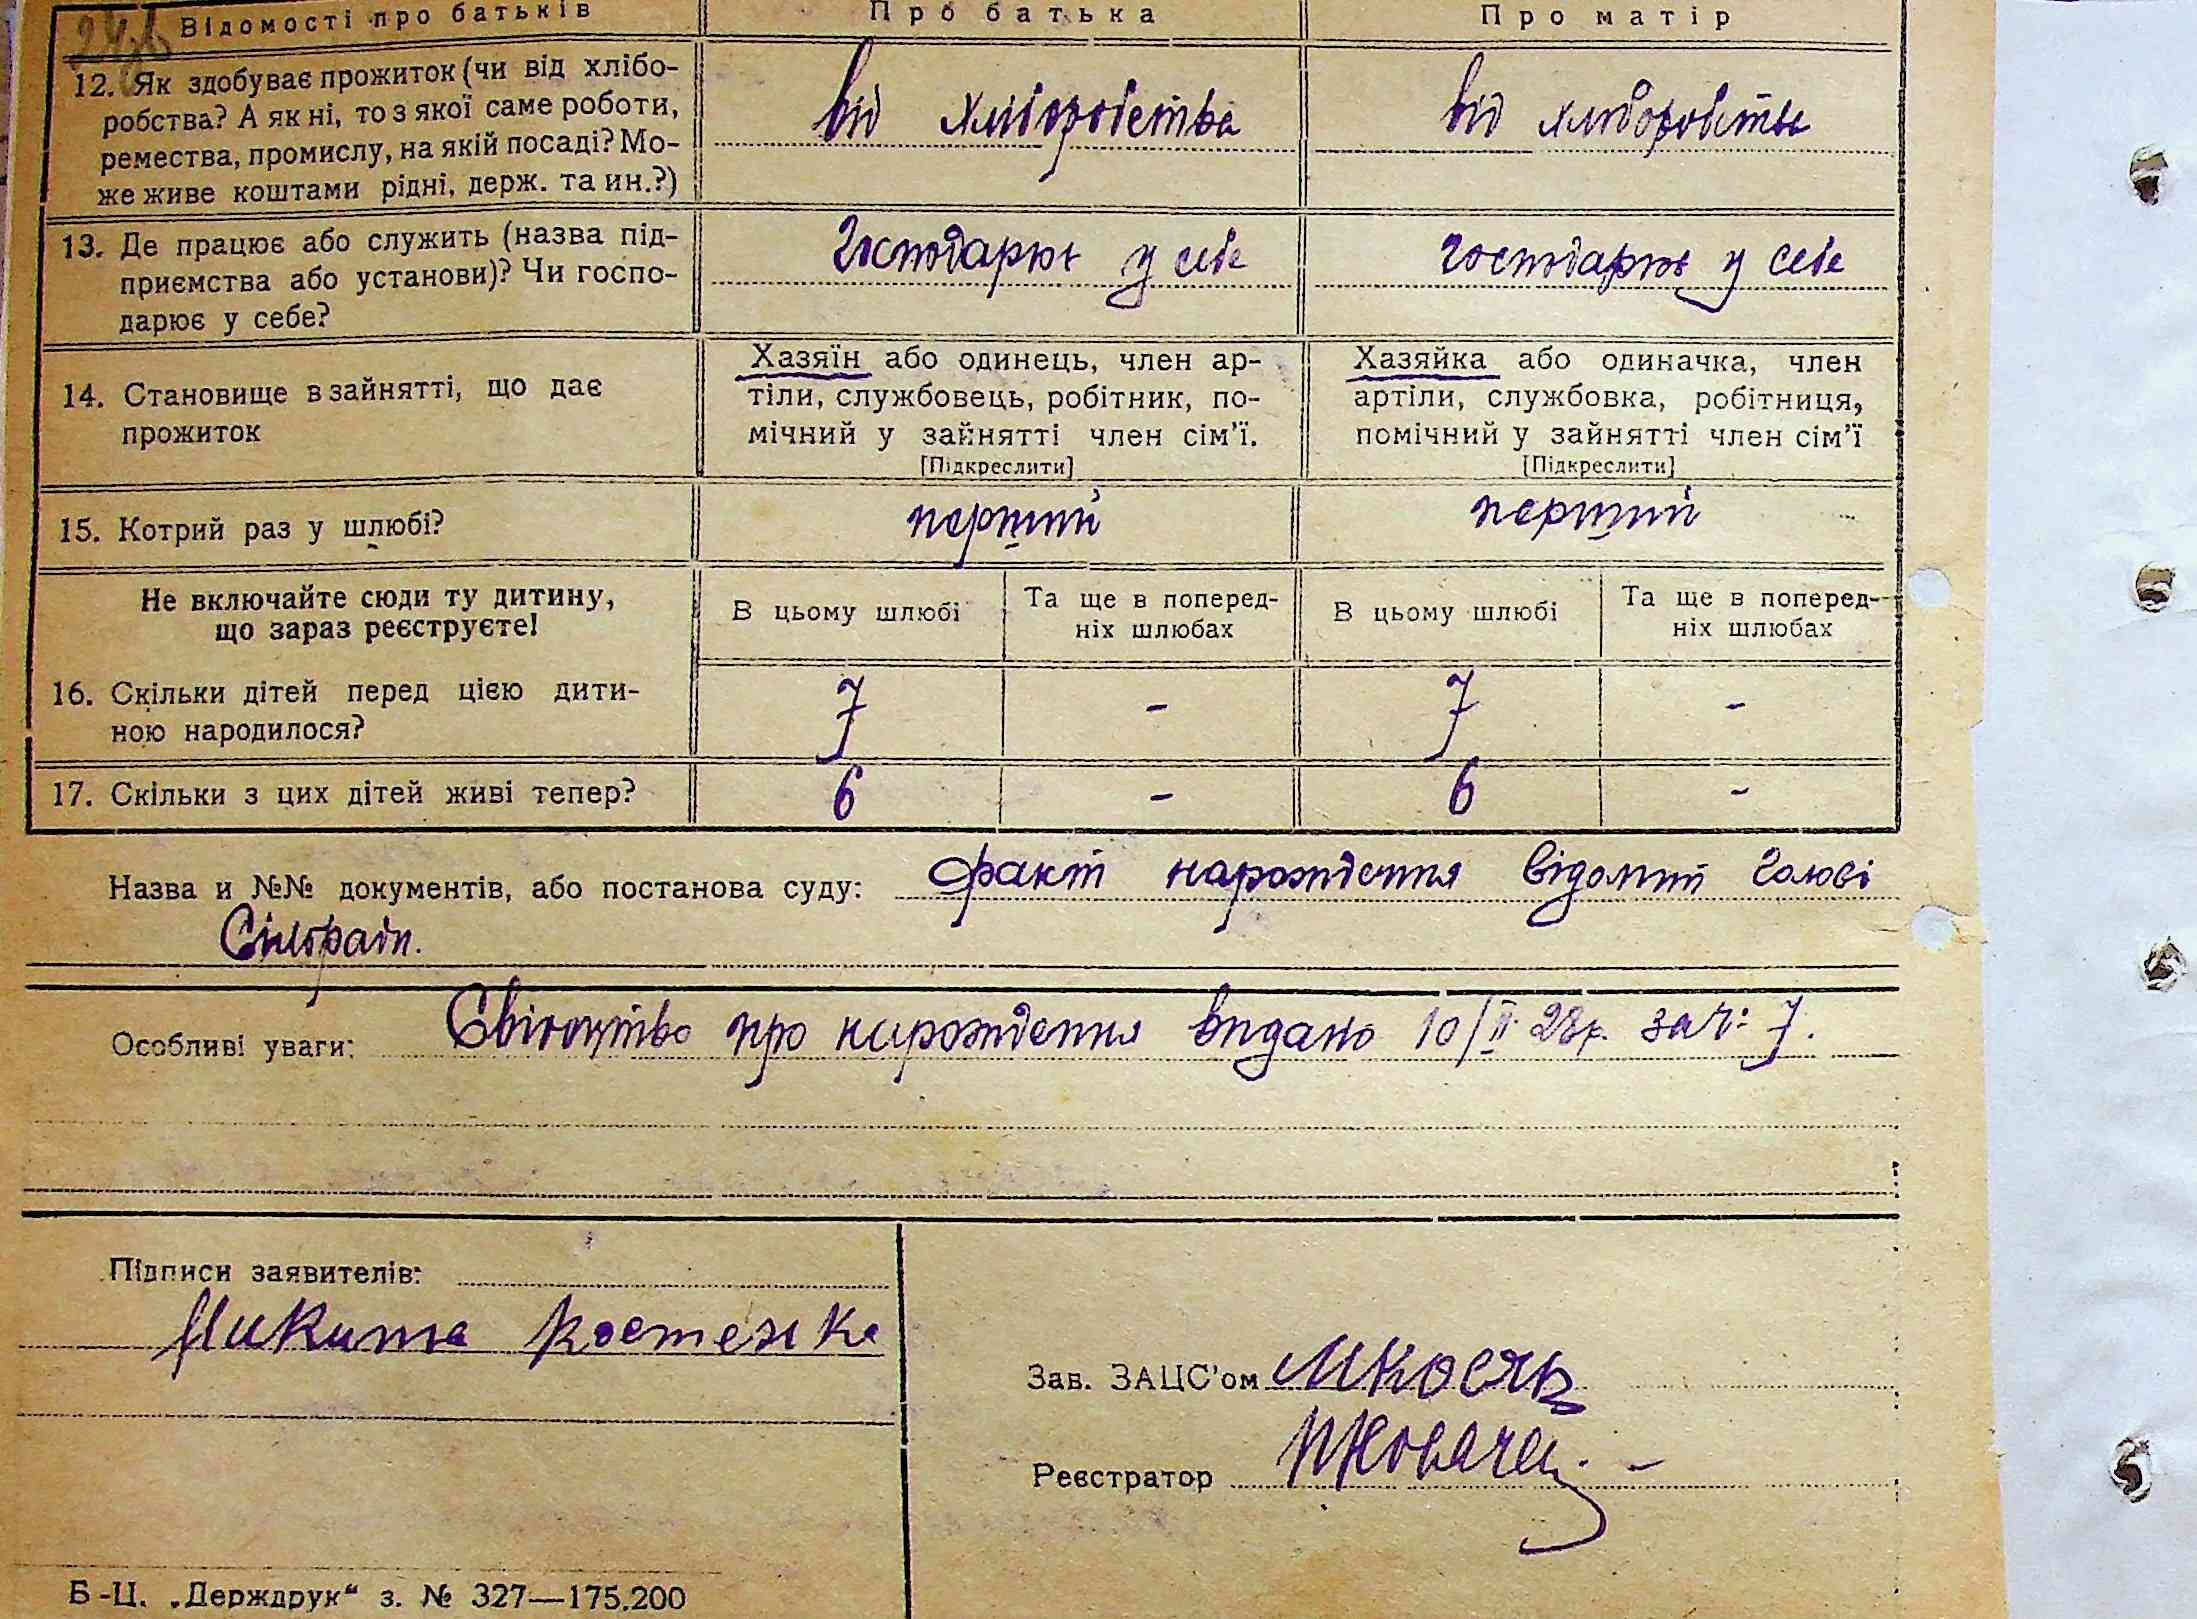 Відомості про батьків Про батька Про матір
12. Як здобуває прожиток (чи від хлібо-
робства? А як ні, то з якої саме роботи,
ремества, промислу, на якій посаді? Мо-
же живе коштами рідні, держ. та ин.?)
від хліборобства від хліборобства
13. Де працює або служить (назва під-
приємства або установи)? Чи госпо-
дарює у себе?
Господарює у себе господарює у себе
14. Становище в зайнятті, що дає
прожиток
Хазяїн або одинець, член ар-
тіли, службовець, робітник, по-
мічний у зайнятті член сім’ї.
[Підкреслити]
Хазяйка або одиначка, член
артіли, службовка, робітниця,
помічний у зайнятті член сім’ї
[Підкреслити]
15. Котрий раз у шлюбі? перший перший
Не включайте сюди ту дитину,
що зараз реєструєте!
В цьому шлюбі
Та ще в поперед-
ніх шлюбах
В цьому шлюбі
Та ще в поперед-
ніх шлюбах
16. Скільки дітей перед цією дити-
ною народилося?
7 - 7 -
17. Скільки з цих дітей живі тепер? 6 - 6 -
Назва и №№ документів, або постанова суду: факт народження відомий Голові
Сільради.
Особливі уваги: про народження видано 10/II 28р. за ч: 7.
Підписи заявителів:
Микита Костенко
Зав. ЗАЦС’ом
Реєстратор
Б-Ц. „Держдрук“ з. № 327—175.200